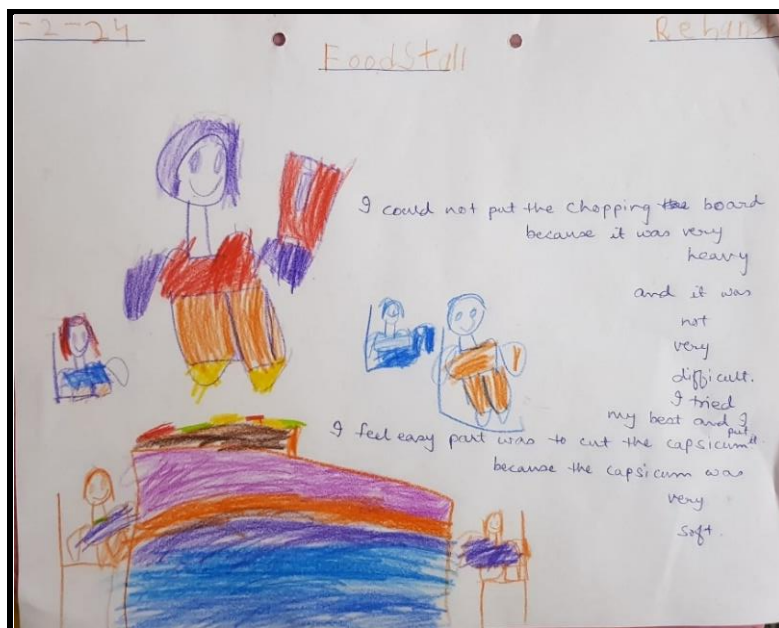 -2-24
Rehans
Food Stall
I could not put the chopping board
because it was very
heavy
and it was
not
very
difficult.
I tried
my best and I
put it.
I feel easy part was to cut the capsicum
because the capsicum was
very
soft.